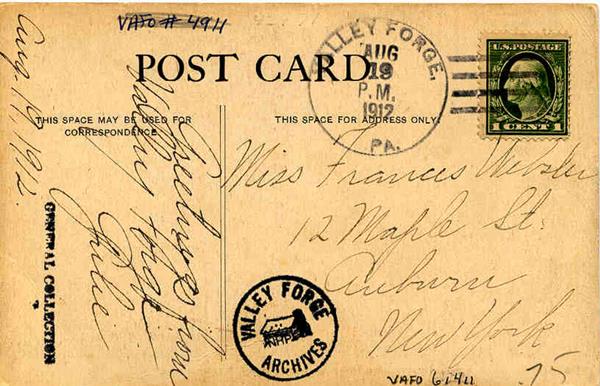 VAFO # 4911
POST CARD.
THIS SPACE MAY BE USED FOR
CORRESPONDENCE.
THIS SPACE FOR ADDRESS ONLY.
VALLEY FORGE,
AUG
19
P.M.
1912
PA.
U.S. POSTAGE
1 CENT 1
Aug 19/12.
Greetings from
Valley Forge
Julie
Miss Frances Webster
12 Maple St.
Auburn
New York
GENERAL COLLECTION
VALLEY FORGE
NHP
ARCHIVES
VAFO 61411
75